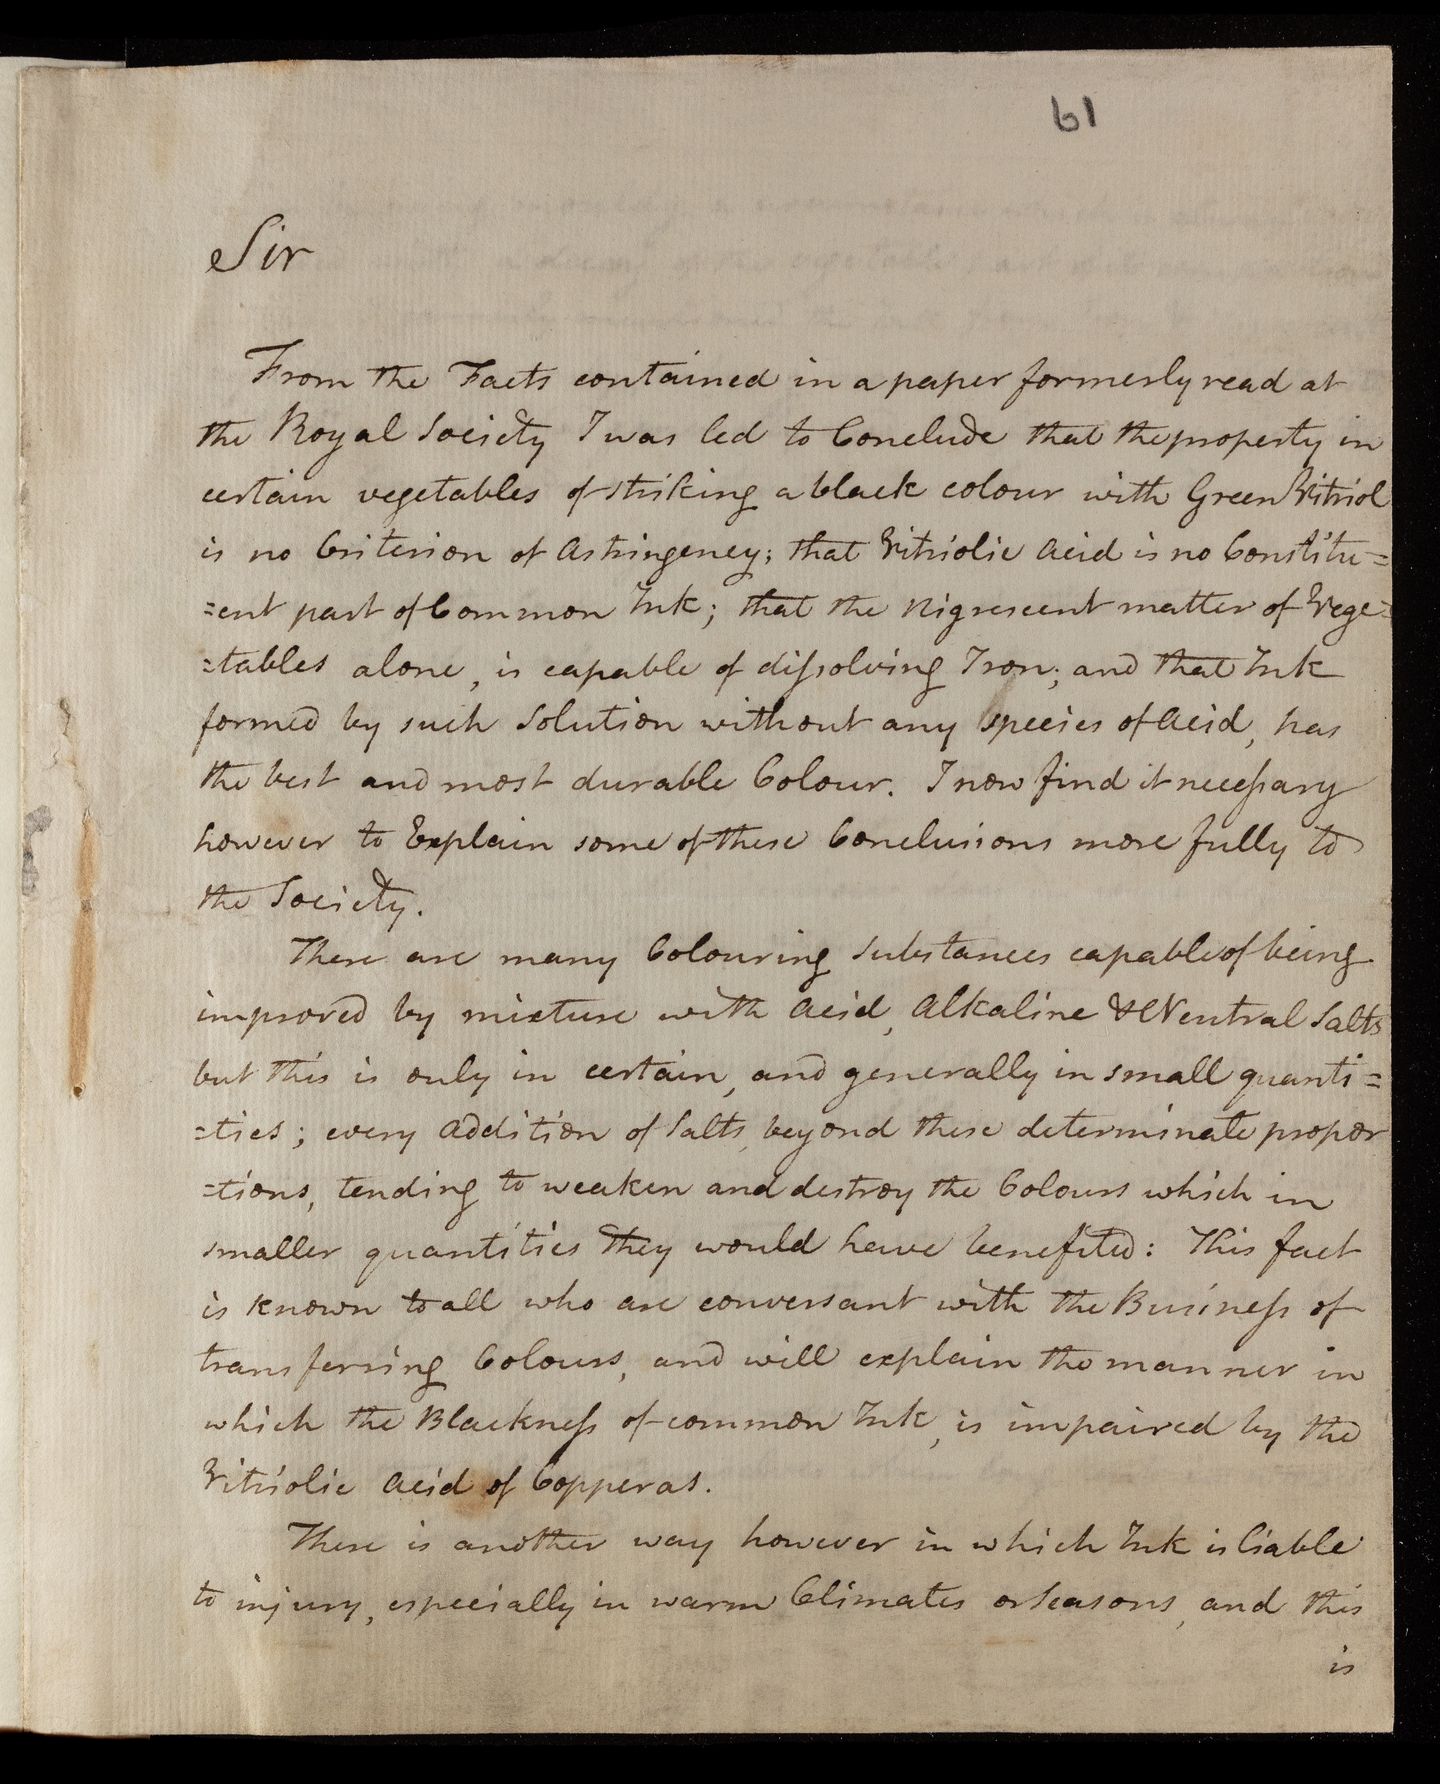 61
Sir
From the Facts contained in a paper formerly read at
the Royal Society I was led to Conclude that the property in
certain vegetables of striking a black colour with Green Vitriol
is no Criterion of Astringency; that Vitriolic Acid is no Constitu=
=ent part of Common Ink; that the nigrescent matter of Vege=
=tables alone, is capable of dissolving Iron; and that Ink
formed by such Solution without any species of Acid, has
the best and most durable Colour. I now find it necessary
however to Explain some of these Conclusions more fully to
the Society.
There are many Colouring Substances capable of being
improved by mixture with Acid, Alkaline & Neutral Salts
but this is only in certain, and generally in small quanti=
=ties; every Addition of Salts, beyond these determinate propor
=tions, tending to weaken and destroy the Colours which in
smaller quantities they would have benefited: This fact
is known to all who are conversant with the Business of
transferring Colours, and will explain the manner in
which the Blackness of common Ink, is impaired by the
Vitriolic Acid of Copperas.
There is another way however in which Ink is liable
to injury, especially in warm Climates or Seasons, and this
is